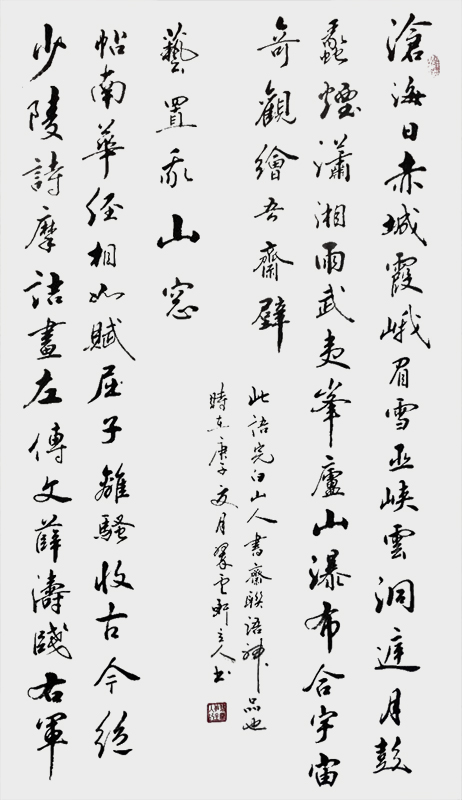 滄海日赤城霞峨眉雪巫峽雲洞庭月彭
蠡煙瀟湘雨武夷峯廬山瀑布合宇宙
奇觀繪吾齋壁
少陵詩摩詰畫左傳文薛濤牋右軍
帖南華經相如賦屈子離騷收古今絕
藝置我山窓
此語完白山人書齋聯語神品也
時在庚子夏月主人书